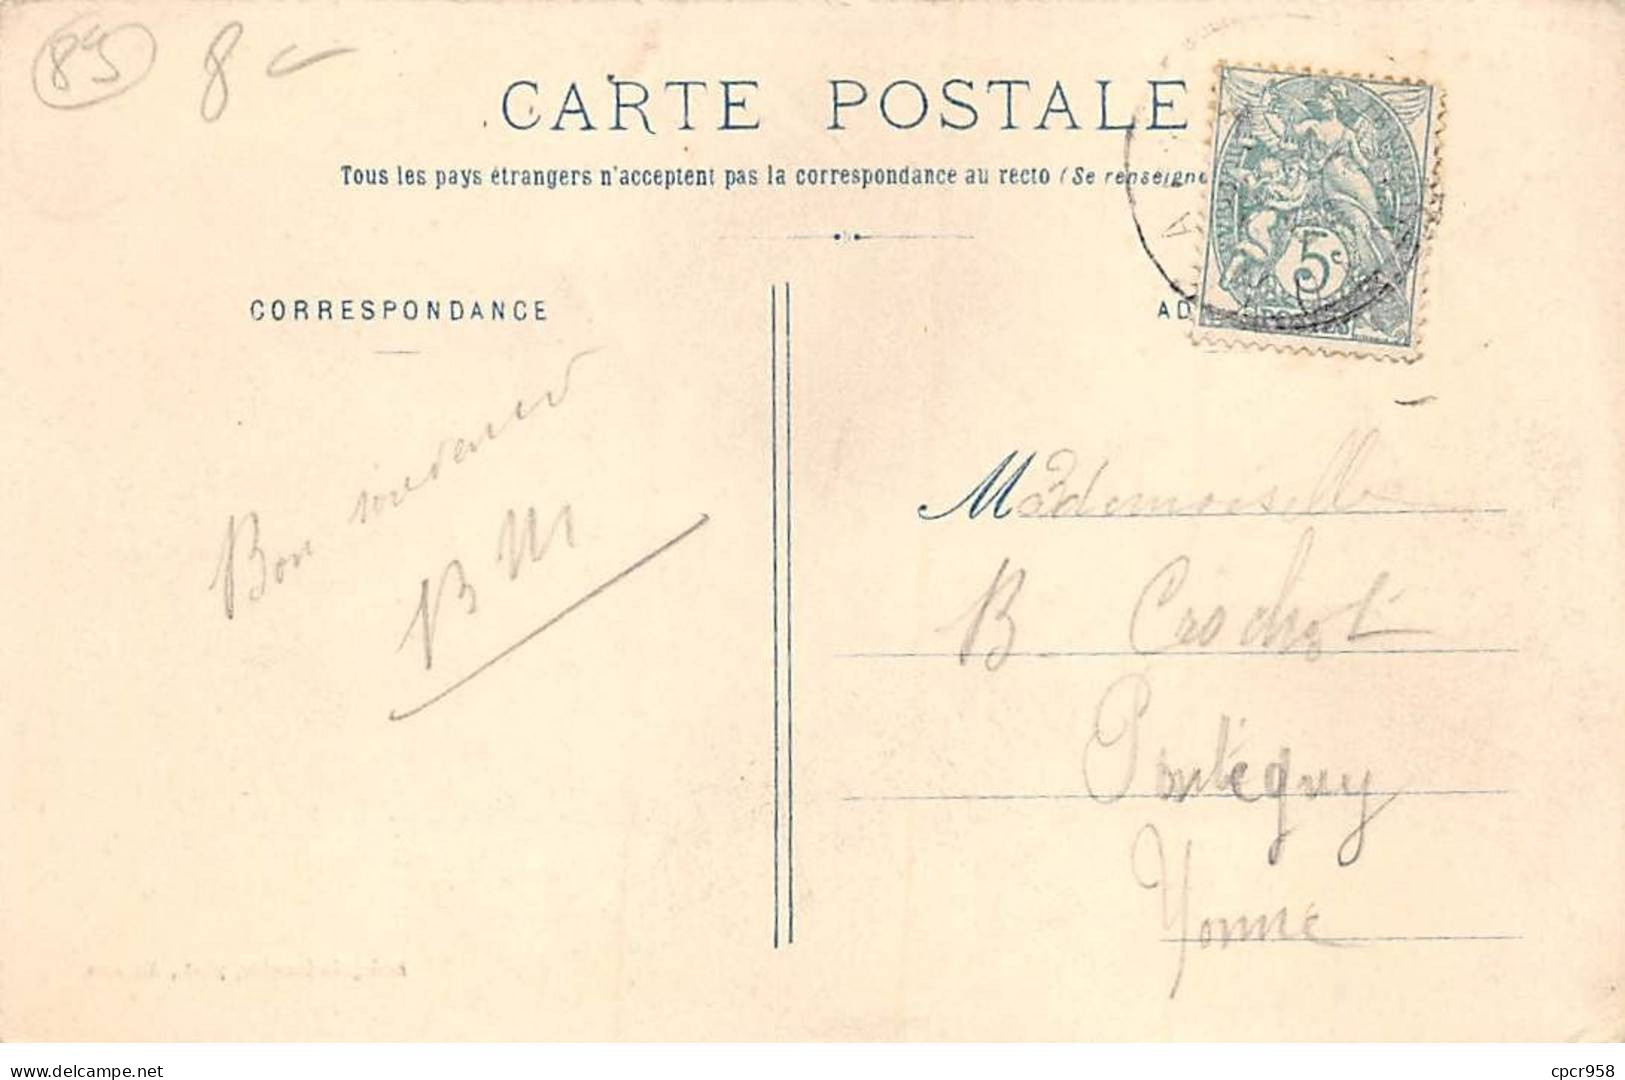 85 8
CARTE POSTALE
Tous les pays étrangers n'acceptent pas la correspondance au recto (Se renseigne
5c
POSTES
CORRESPONDANCE
AD
Bon souvenir
B M
Mademoiselle
B Crochot
Pontigny
Yonne
delcampe.net
cpcr958